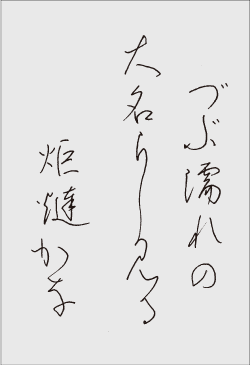 づぶ濡れの
大名を見る
炬燵かな